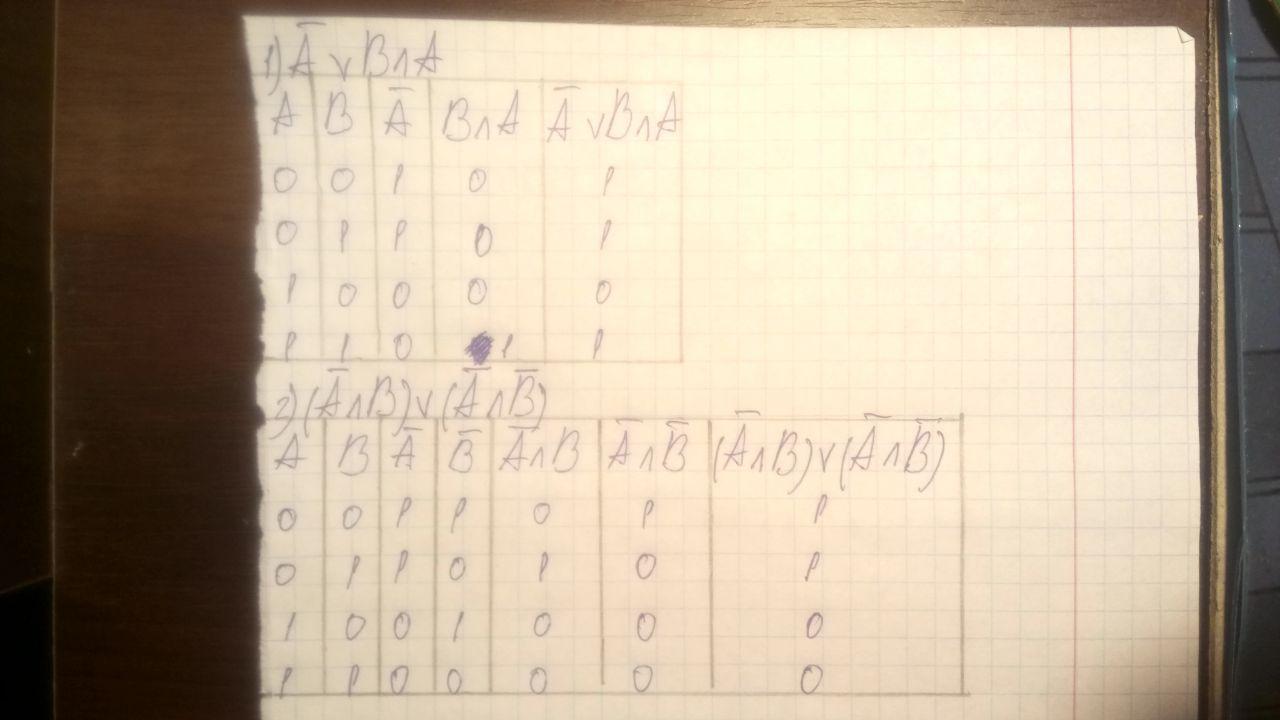 1) A̅ ∨ B∧A
A B A̅ B∧A A̅ ∨B∧A
0 0 1 0 1
0 1 1 0 1
1 0 0 0 0
1 1 0 1 1
2) (A̅∧B)∨(A̅∧B̅)
A B A̅ B̅ A̅∧B A̅∧B̅ (A̅∧B)∨(A̅∧B̅)
0 0 1 1 0 1 1
0 1 1 0 1 0 1
1 0 0 1 0 0 0
1 1 0 0 0 0 0